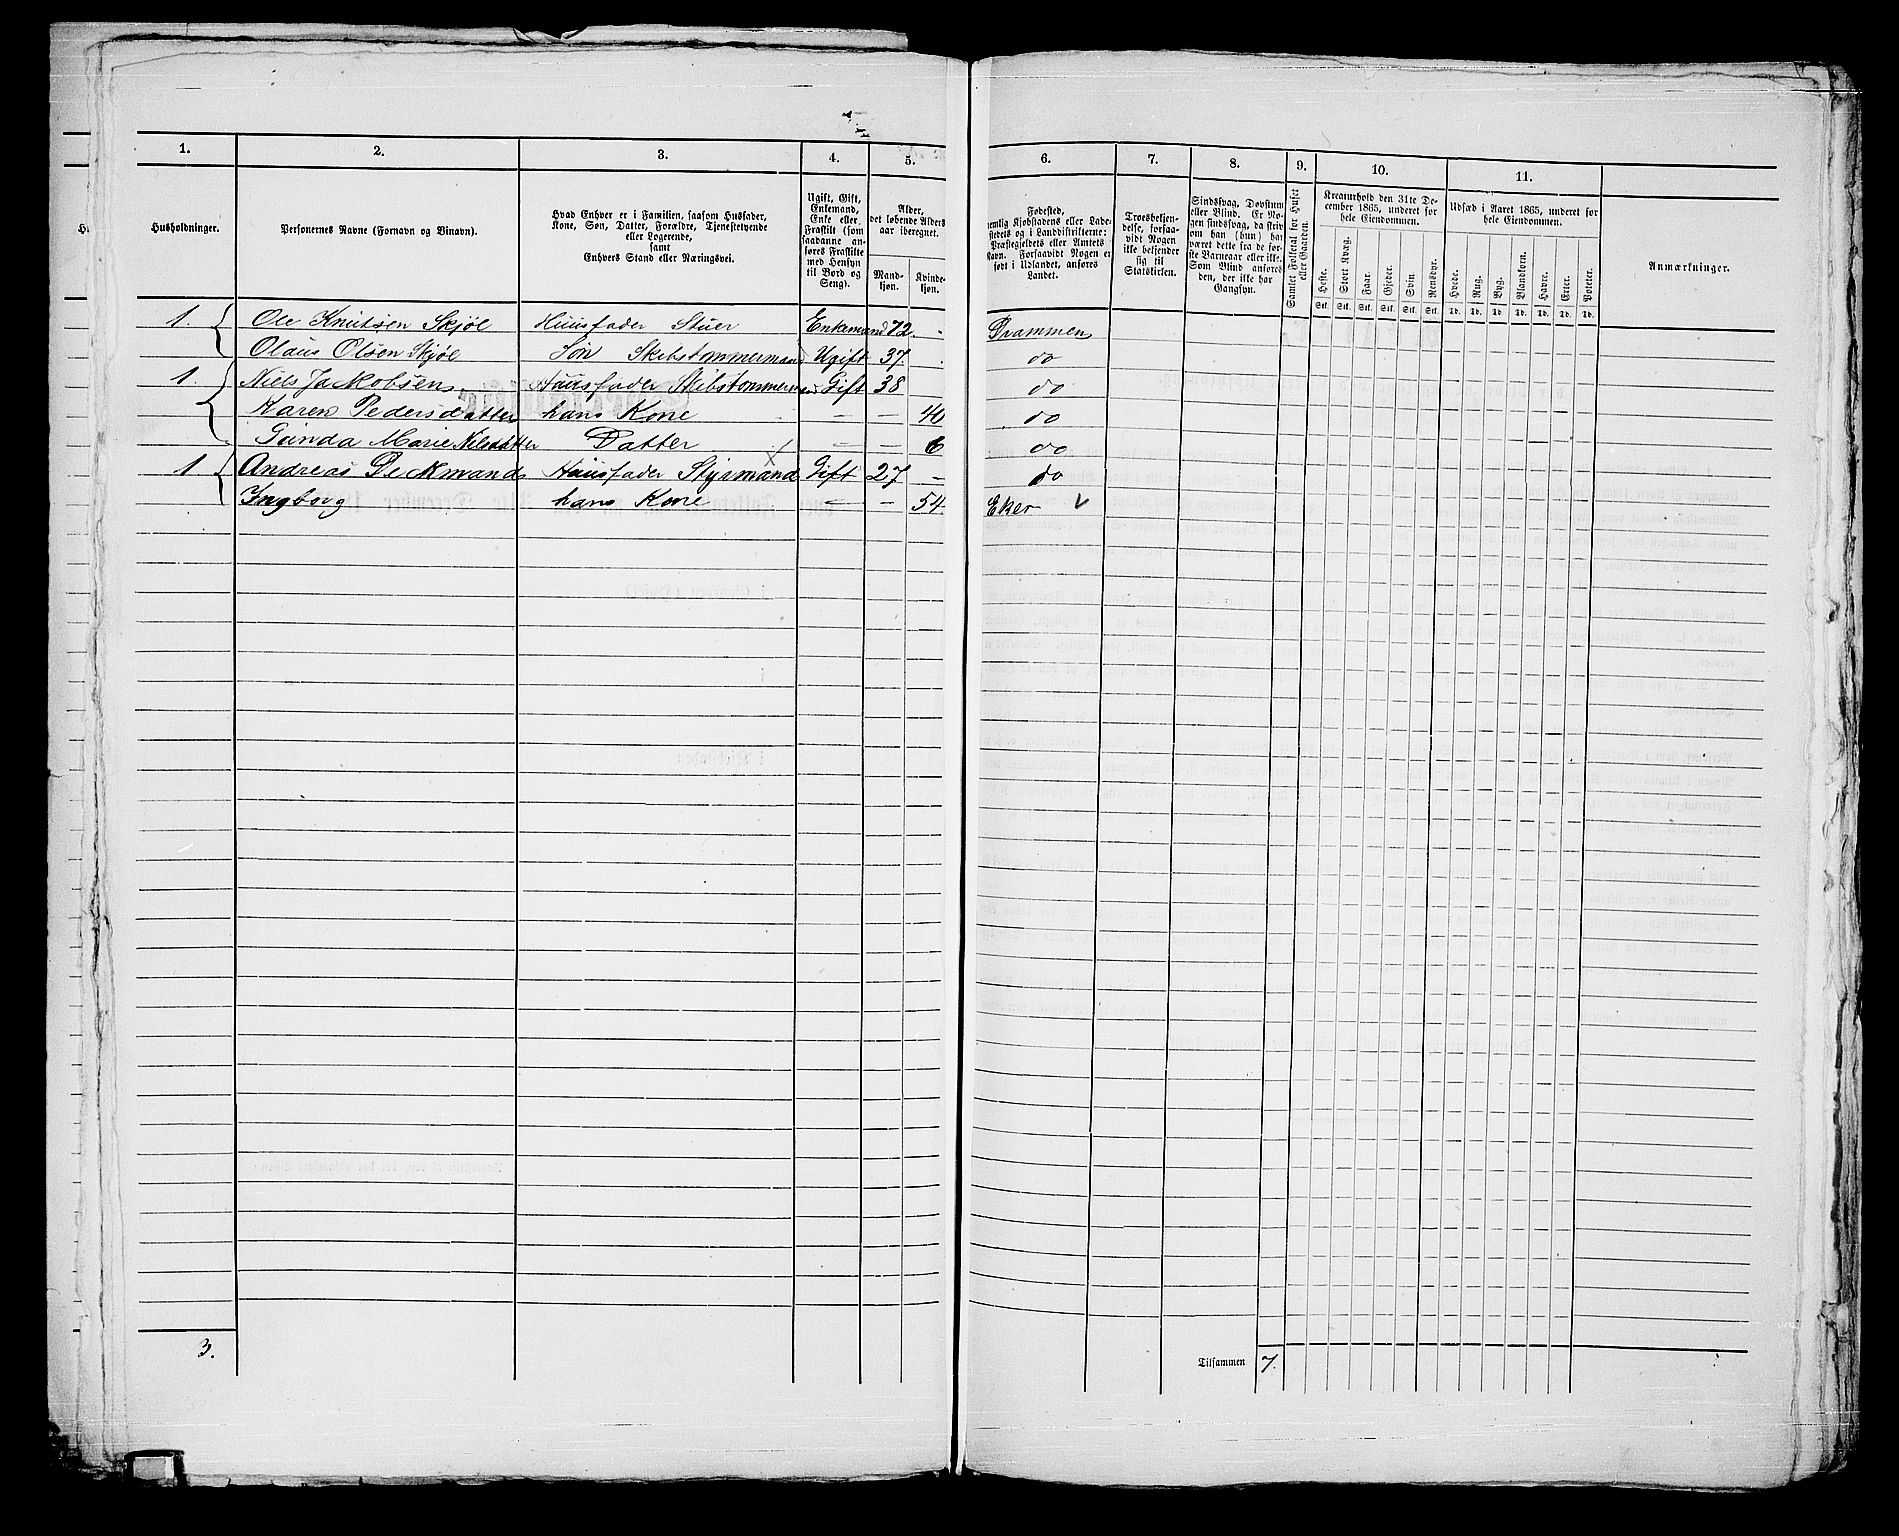 1. 2. 3. 4. 5. 6. 7. 8. 9. 10. 11.
Husholdninger.
Personernes Navne (Fornavn og Binavn).
Hvad Enhver er i Familien, saasom Husfader,
Kone, Søn, Datter, Forældre, Tjenestetyende
eller Logerende,
samt
Enhvers Stand eller Næringsvei.
Ugift, Gift,
Enkemand,
Enke eller
Frastilt (som
saadanne an-
føres Fraskilte
med Hensyn
til Bord og
Seng).
Alder,
det løbende Alders-
aar iberegnet.
Mand-
kjøn.
Kvinde-
kjøn.
Fødested,
nemlig Kjøbstadens eller Lade-
stedets og i Landdistrikterne:
Præstegjeldets eller Amtets
Navn. Forsaavidt Nogen er
født i Udlandet, anføres
Landet.
Troesbekjen-
delse, forsaa-
vidt Nogen
ikke bekjender
sig til
Statskirken.
Sindssvag, Døvstum
eller Blind. Er No-
gen sindssvag, da skriv
om han (hun) har
været dette fra de før-
ste Barneaar eller ikke.
Som Blind anføres
den, der ikke har
Gangsyn.
Samlet Folketal for Huset
eller Gaarden.
Kreaturhold den 31te De-
cember 1865, underet for
hele Eiendommen.
Heste. Stort Kvæg. Faar. Gjeder. Svin. Rensdyr.
Stk. Stk. Stk. Stk. Stk. Stk.
Udsæd i Aaret 1865, underet for
hele Eiendommen.
Hvede. Rug. Byg. Blandkorn. Havre. Erter. Poteter.
Td. Td. Td. Td. Td. Td. Td.
Anmærkninger.
1. Ole Knutsen Skjøl Huusfader Stuer Enkemand 72. - Drammen
Olaus Olsen Skjøl Søn Skibstommermand Ugift 37. . do
1. Niels Jackobsen. Huusfader Skibstommermand Gift 38 do
Karen Pedersdatter hans Kone — — 40 do
Gunda Marie Nilsdatter Datter — — 6 do
1 Andreas Deckmand Huusfader Styrmand Gift 27 — do
Ingborg hans Kone — — 54 Eker
3.
Tilsammen 7.